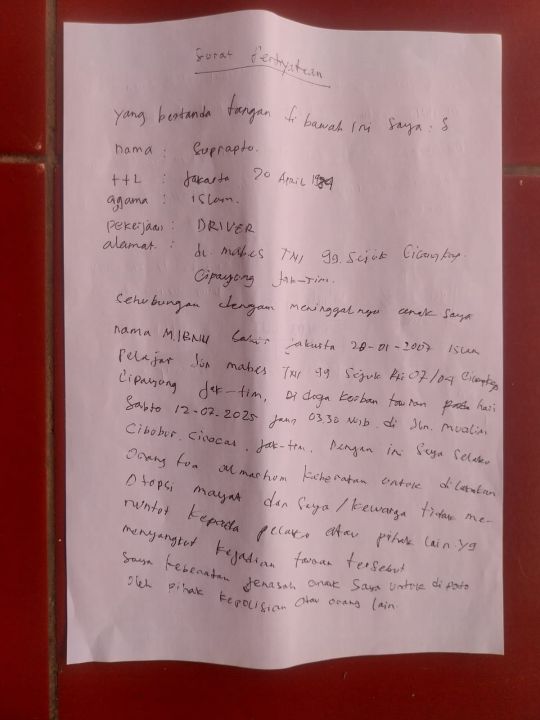 Surat Pertnyataan
yang bertanda tangan di bawah ini saya : S
nama : Suprapto.
ttL : Jakarta 20 April
agama : islam.
pekerjaan : DRIVER
alamat : JL. mabes TNI gg. Sejuk Cilangkap.
Cipayung Jak-tim.
Sehubungan dengan meninggalnya anak saya
nama M.IBNU Lahir jakarta 28-01-2007 islam
Pelajar Jln mabes TNI gg Sejuk Rt 07/04 Cilangkap
Cipayung Jak-tim, Di duga korban tauran pada hari
Sabto 12-07-2025 jam 03.30 WIB. di Jln. mualim
Cibobur. Ciracas. Jak-tim. Dengan ini Saya Selaku
Orang tua almarhum keberatan untuk dilakukan
Otopsi mayat dan Saya / keluarga tidak me-
nuntut kepada pelaku atau pihak lain yg
menyangkut kejadian tauran tersebut
Saya keberatan jenasah anak Saya untuk di poto
Oleh pihak kepolisian atau orang lain.